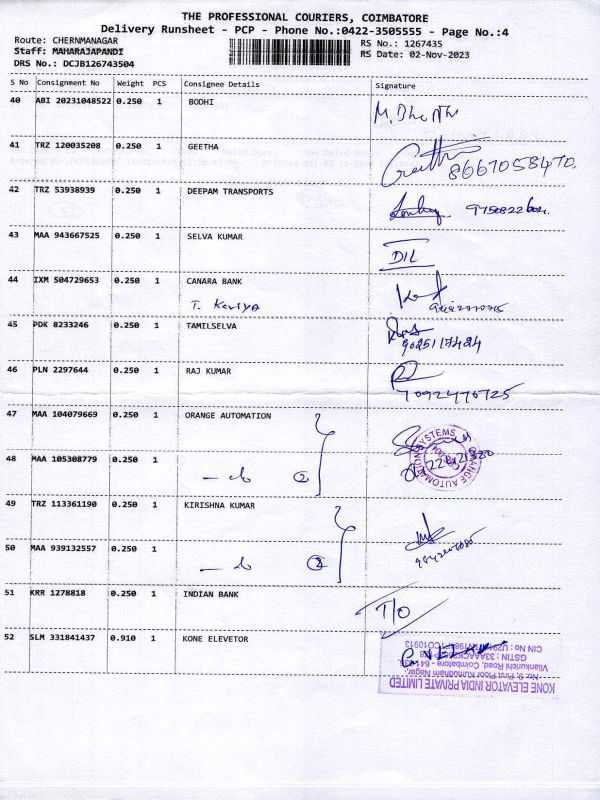 THE PROFESSIONAL COURIERS, COIMBATORE
Delivery Runsheet - PCP - Phone No.:0422-3505555 - Page No.:4
Route: CHERNMANAGAR RS No.: 1267435
Staff: MAHARAJAPANDI RS Date: 02-Nov-2023
DRS No.: DCJB126743504
S No Consignment No Weight PCS Consignee Details Signature
40 ABI 20231048522 0.250 1 BODHI
41 TRZ 120035208 0.250 1 GEETHA Geetha 8667058470
42 TRZ 53938939 0.250 1 DEEPAM TRANSPORTS
43 MAA 943667525 0.250 1 SELVA KUMAR DIL
44 IXM 504729653 0.250 1 CANARA BANK
T. Kaviya
45 PDK 8233246 0.250 1 TAMILSELVA 9025117424
46 PLN 2297644 0.250 1 RAJ KUMAR 7092476725
47 MAA 104079669 0.250 1 ORANGE AUTOMATION
48 MAA 105308779 0.250 1 — do ②
ORANGE AUTOMATION SYSTEMS
49 TRZ 113361190 0.250 1 KIRISHNA KUMAR
50 MAA 939132557 0.250 1 — do ②
51 KRR 1278818 0.250 1 INDIAN BANK T/O
52 SLM 331841437 0.910 1 KONE ELEVETOR
KONE ELEVATOR INDIA PRIVATE LIMITED
No: 9, First Floor Kumudham Nagar,
Vilankurichi Road, Coimbatore